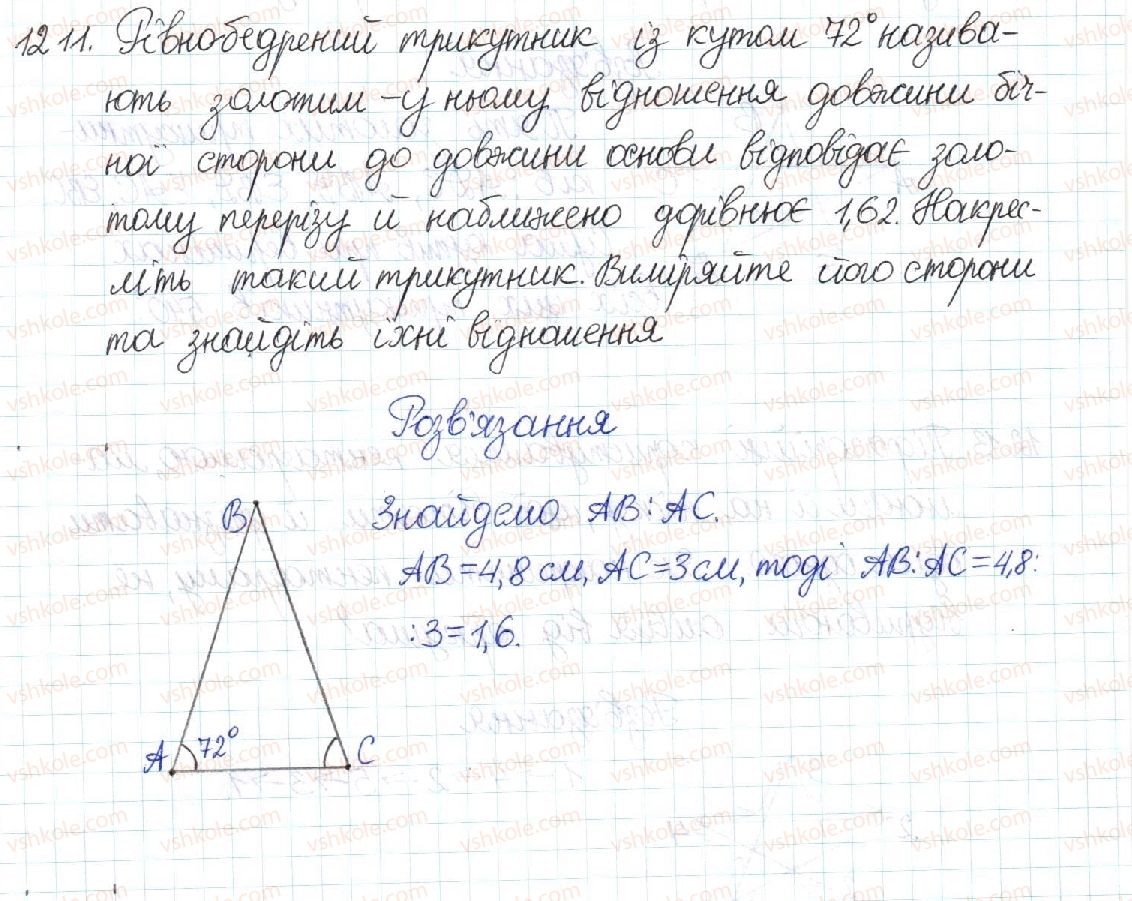 1211. Рівнобедрений трикутник із кутом 72° назива-
ють золотим - у ньому відношення довжини біч-
ної сторони до довжини основи відповідає золо-
тому перерізу й наближено дорівнює 1,62. Накрес-
літь такий трикутник. Виміряйте його сторони
та знайдіть їхні відношення
Розв'язання
B
Знайдемо AB : AC.
AB = 4,8 см, AC = 3 см, тоді AB : AC = 4,8 :
: 3 = 1,6.
A 72° C
vshkole.com